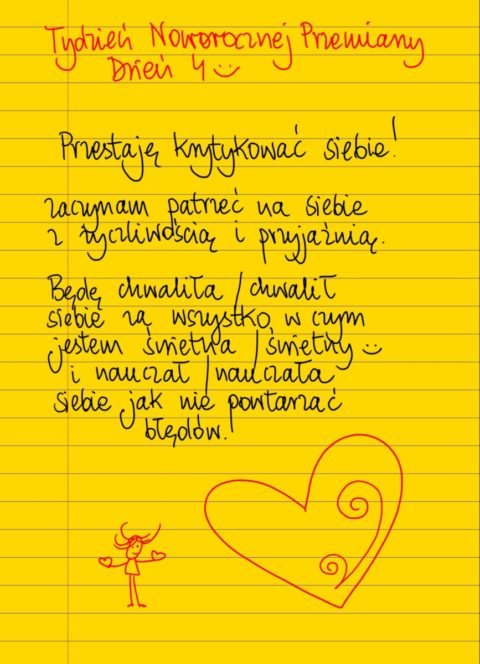 Tydzień Noworocznej Przemiany
Dzień 4
Przestaję krytykować siebie!
zaczynam patrzeć na siebie
z życzliwością i przyjaźnią.
Będę chwaliła / chwalił
siebie za wszystko, w czym
jestem świetna / świetny
i nauczał / nauczała
siebie jak nie powtarzać
błędów.